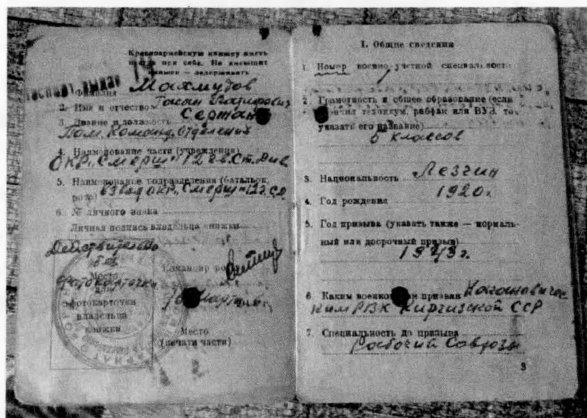 Красноармейскую книжку иметь
всегда при себе. Не имеющих
книжек — задерживать
1. Фамилия Махмудов
2. Имя и отчество Гасан
3. Звание и должность Сержант
Пом. Команд. отделения
4. Наименование части (учреждения)
ОКР „Смерш" 12 гв. Ст. Див
5. Наименование подразделения (батальон,
рота) ОКР „Смерш" 12 г. СД
6. № личного знака
Личная подпись владельца книжки
Действительно
без
фотокарточки
Место
для
фотокарточки
владельца
книжки
Командир роты
Место
(печати части)
I. Общие сведения
1. Номер военно-учетной специальности
2. Грамотность и общее образование (если
окончил техникум, рабфак или ВУЗ, то
указать его название)
5 классов
3. Национальность Лезгин
4. Год рождения 1920г.
5. Год призыва (указать также — нормаль-
ный или досрочный призыв)
1943г.
6. Каким военкоматом призван Кагановичес
ким РВК Киргизской ССР
7. Специальность до призыва
Рабочий Совхоза
3